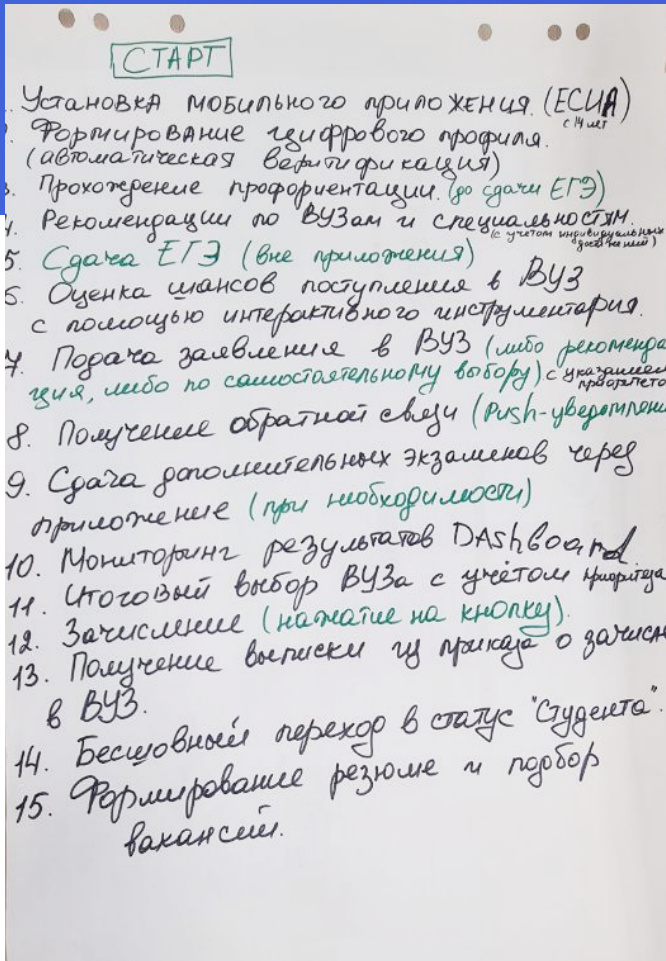 СТАРТ
1. Установка мобильного приложения. (ЕСИА)
с 14 лет
Формирование цифрового профиля.
(автоматическая верификация)
3. Прохождение профориентации. (до сдачи ЕГЭ)
4. Рекомендации по ВУЗам и специальностям.
(с учетом индивидуальных
достижений)
5. Сдача ЕГЭ (вне приложения)
6. Оценка шансов поступления в ВУЗ
с помощью интерактивного инструментария.
7. Подача заявления в ВУЗ (либо рекоменда
ция, либо по самостоятельному выбору) с указанием
приоритето
8. Получение обратной связи (Push-уведомлени
9. Сдача дополнительных экзаменов через
приложение (при необходимости)
10. Мониторинг результатов DAshboard.
11. Итоговый выбор ВУЗа с учётом приоритета
12. Зачисление (нажатие на кнопку).
13. Получение выписки из приказа о зачисл
в ВУЗ.
14. Бесшовный переход в статус "Студента".
15. Формирование резюме и подбор
вакансий.